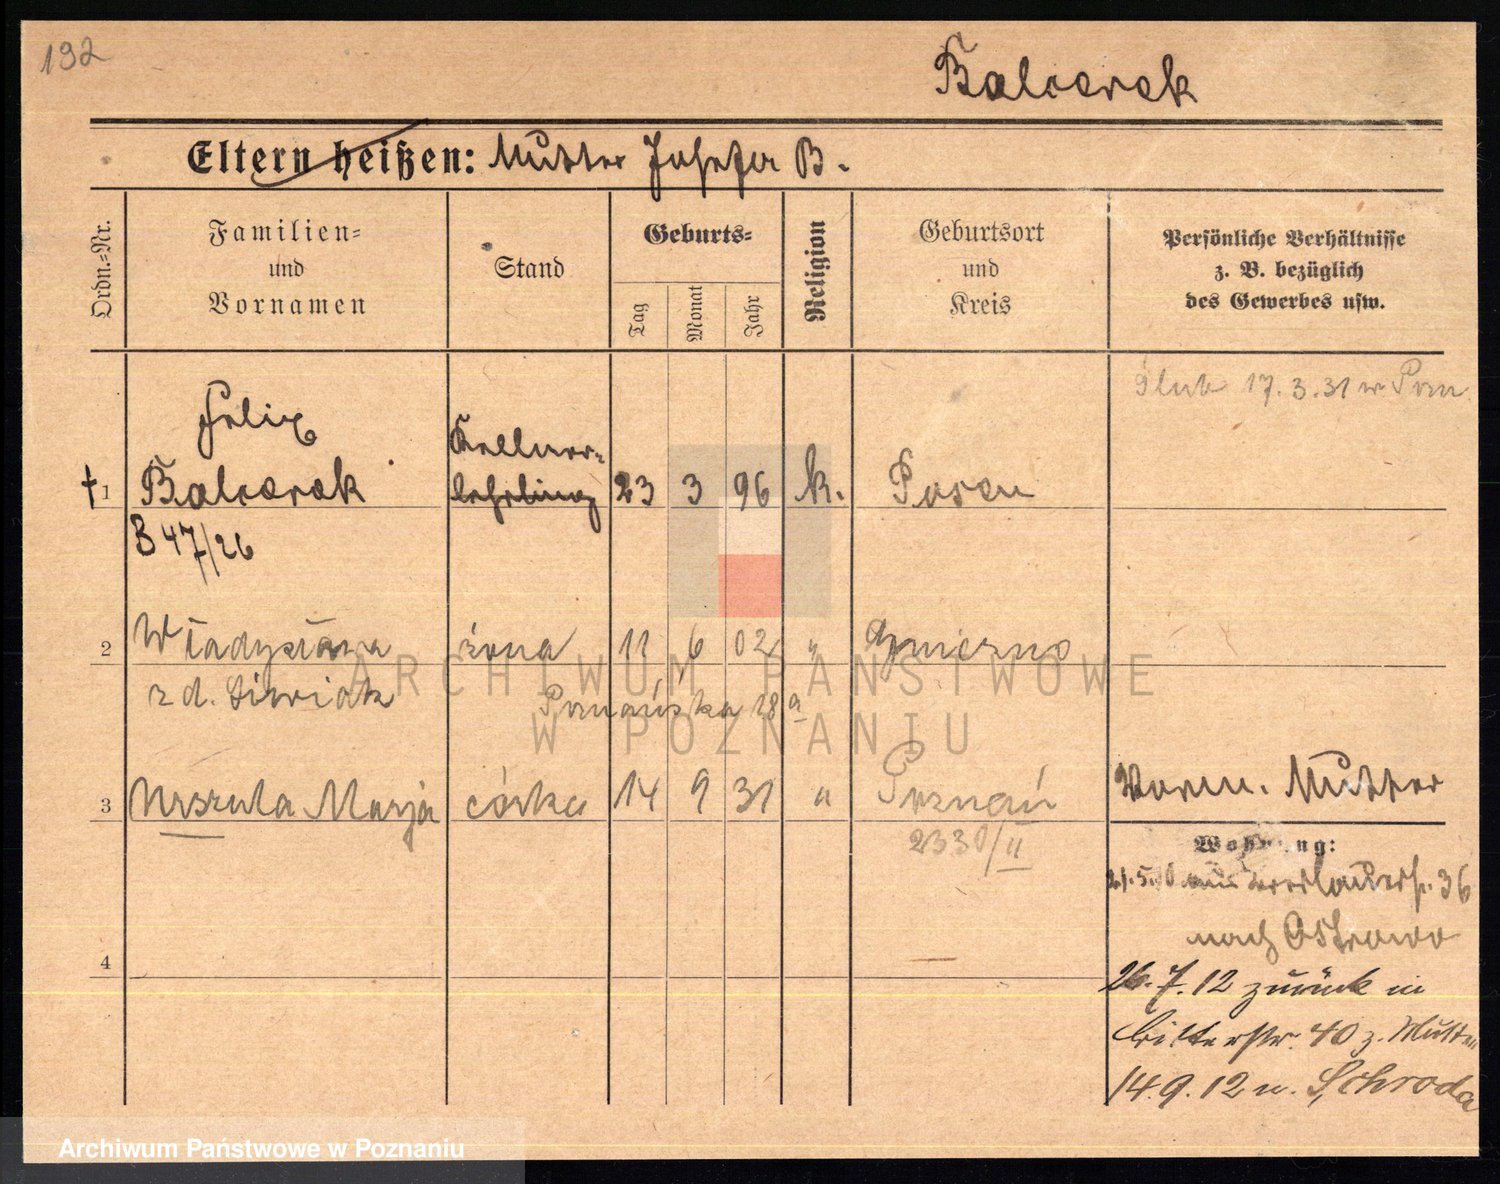 192
Balcerek
Eltern heißen: Mutter Josefa B.
Ordn.-Nr.
Familien-
und
Vornamen
Stand
Geburts-
Tag
Monat
Jahr
Religion
Geburtsort
und
Kreis
Persönliche Verhältnisse
z. B. bezüglich
des Gewerbes usw.
ślub 17.3.31 w Pozn
Felix
Kellner-
† 1 Balcerek lehrling 23 3 96 k. Posen
B 47/26
2 Władysława żona 11 6 02 " Gniezno
z d. Siwiak Poznańska 18 a
3 Urszula Marja córka 14 9 31 " Poznań
2330/II
Vorm. Mutter
Wohnung:
36
nach Ostrowo
4
26.7.12 zurück in
Bitterstr. 40 z. Mutter
14.9.12 n. Schroda
ARCHIWUM PAŃSTWOWE
W POZNANIU
Archiwum Państwowe w Poznaniu